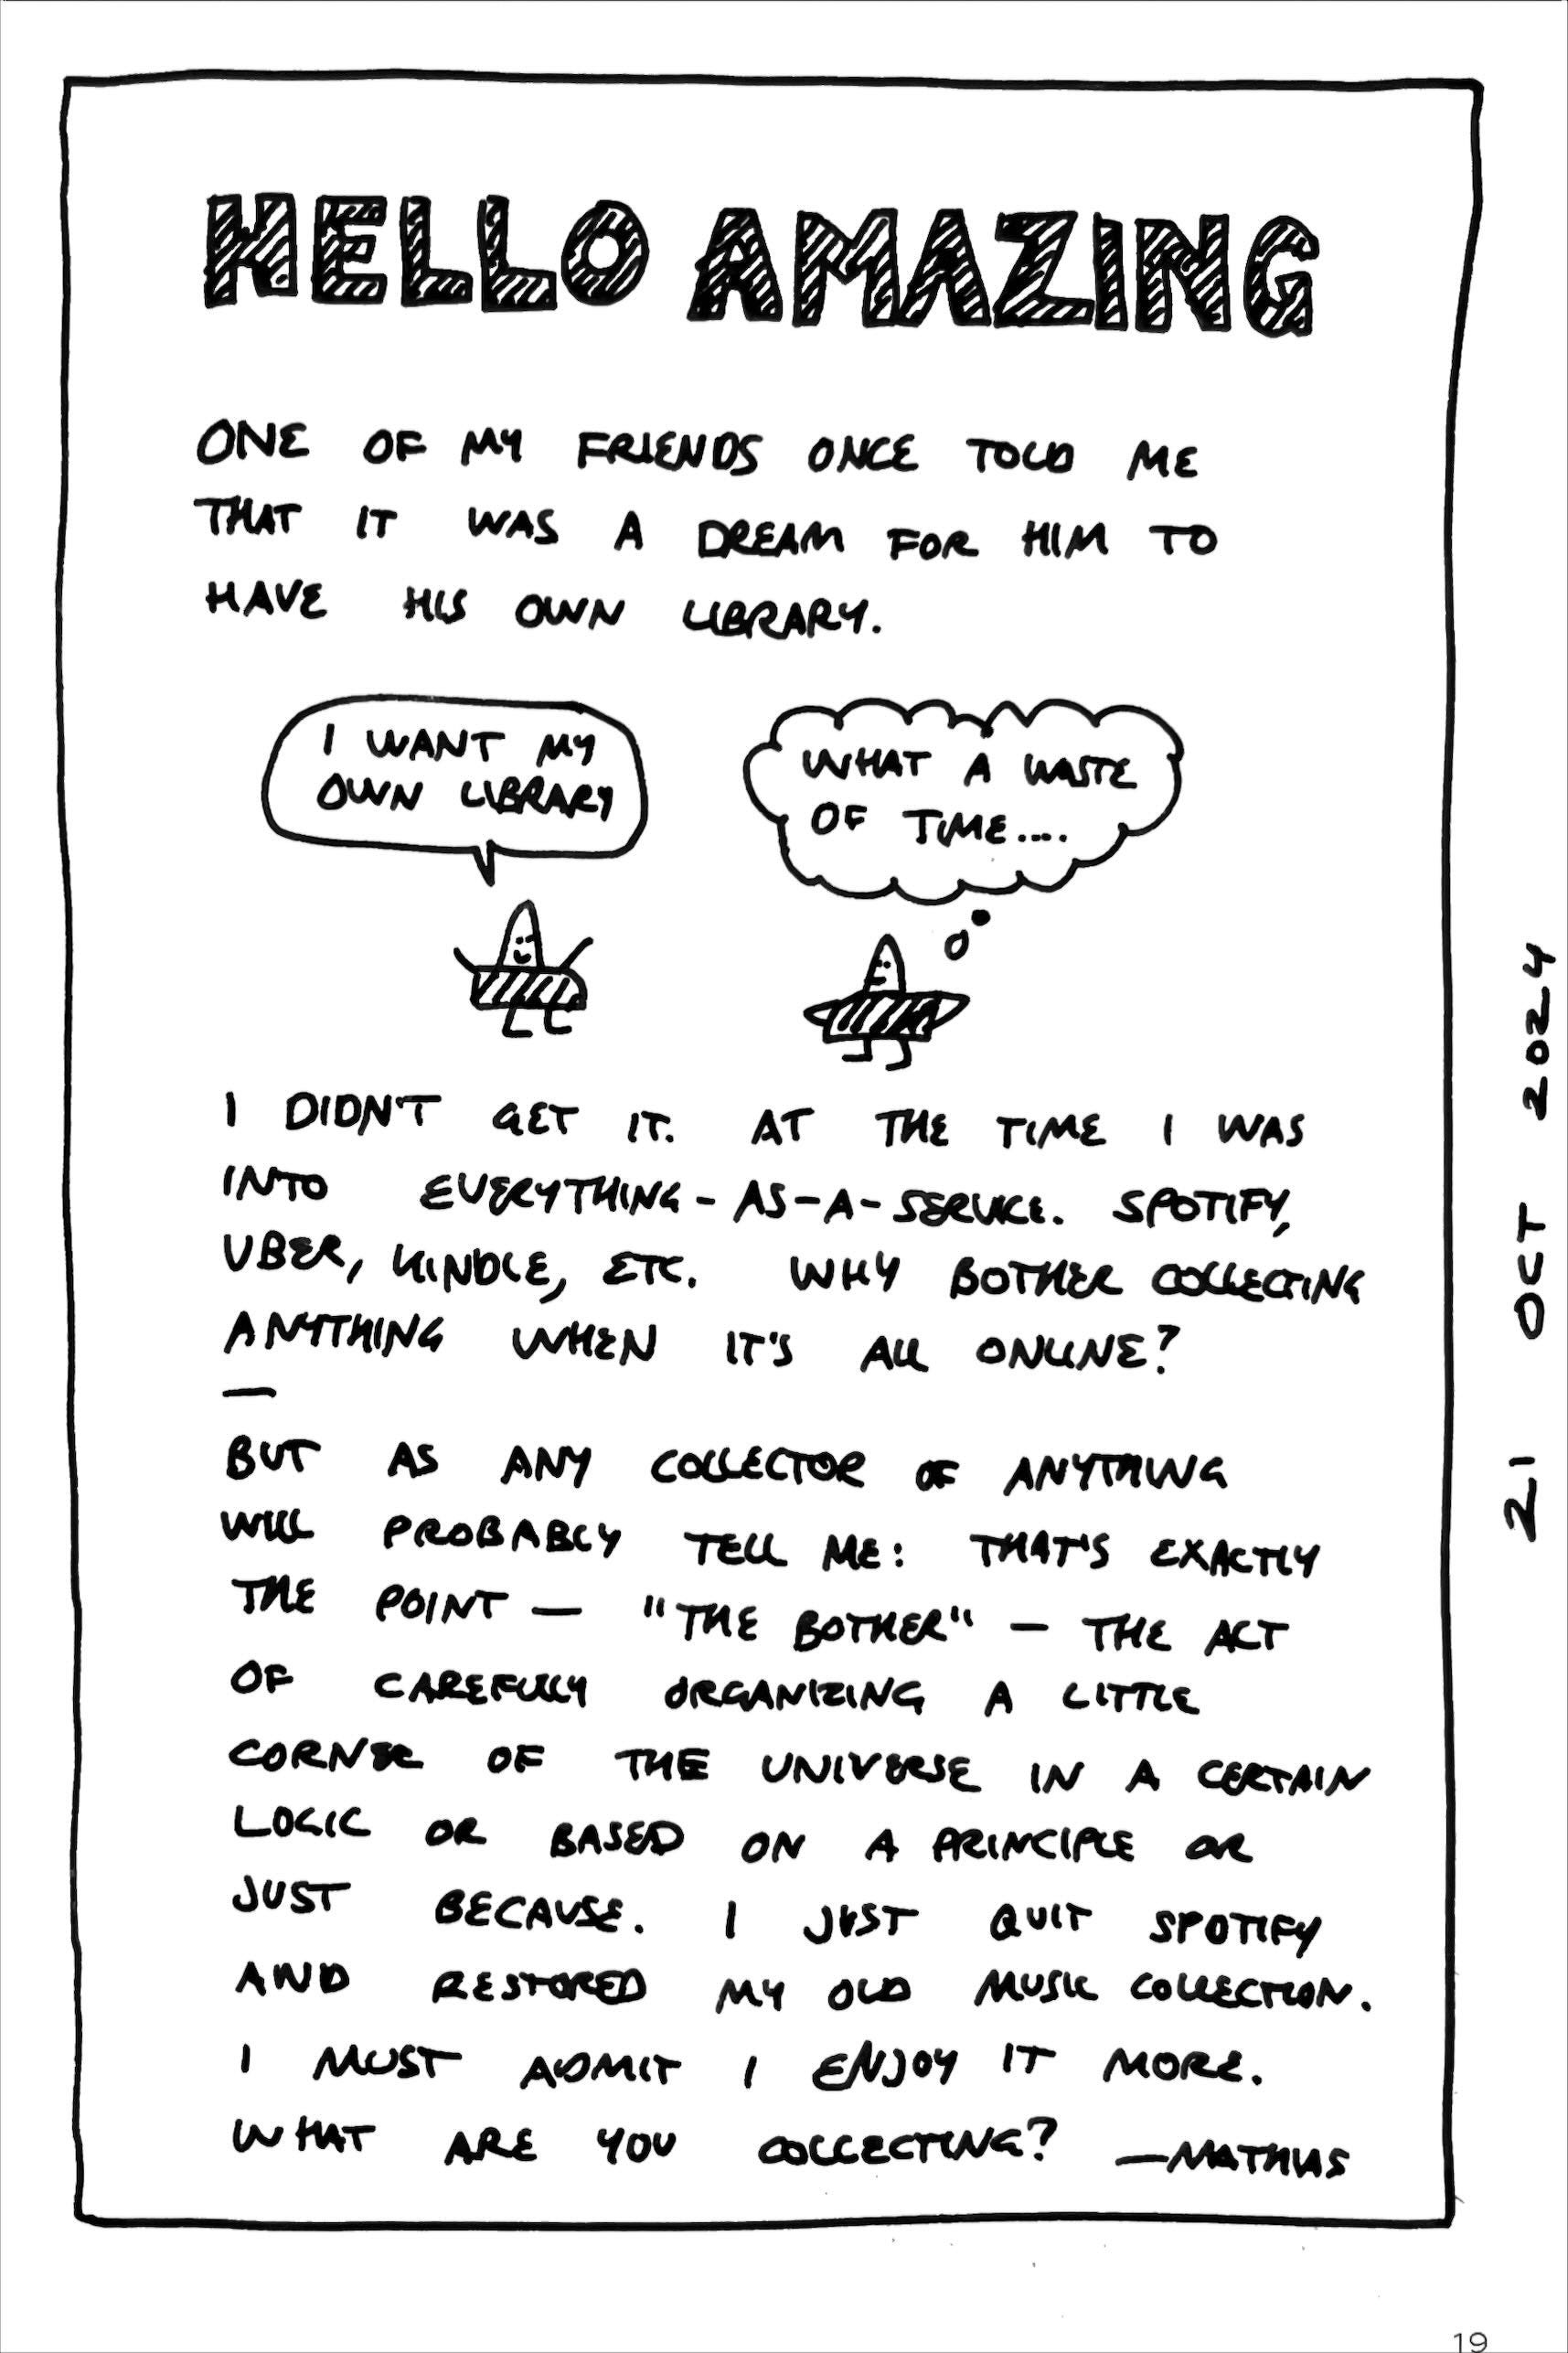 HELLO AMAZING
ONE OF MY FRIENDS ONCE TOLD ME
THAT IT WAS A DREAM FOR HIM TO
HAVE HIS OWN LIBRARY.
I WANT MY
OWN LIBRARY
WHAT A WASTE
OF TIME....
I DIDN'T GET IT. AT THE TIME I WAS
INTO EVERYTHING-AS-A-SERVICE. SPOTIFY,
UBER, KINDLE, ETC. WHY BOTHER COLLECTING
ANYTHING WHEN IT'S ALL ONLINE?
—
BUT AS ANY COLLECTOR OF ANYTHING
WILL PROBABLY TELL ME: THAT'S EXACTLY
THE POINT — "THE BOTHER" — THE ACT
OF CAREFULLY ORGANIZING A LITTLE
CORNER OF THE UNIVERSE IN A CERTAIN
LOGIC OR BASED ON A PRINCIPLE OR
JUST BECAUSE. I JUST QUIT SPOTIFY
AND RESTORED MY OLD MUSIC COLLECTION.
I MUST ADMIT I ENJOY IT MORE.
WHAT ARE YOU COLLECTING? —MATHIAS
21 OCT 2024
19